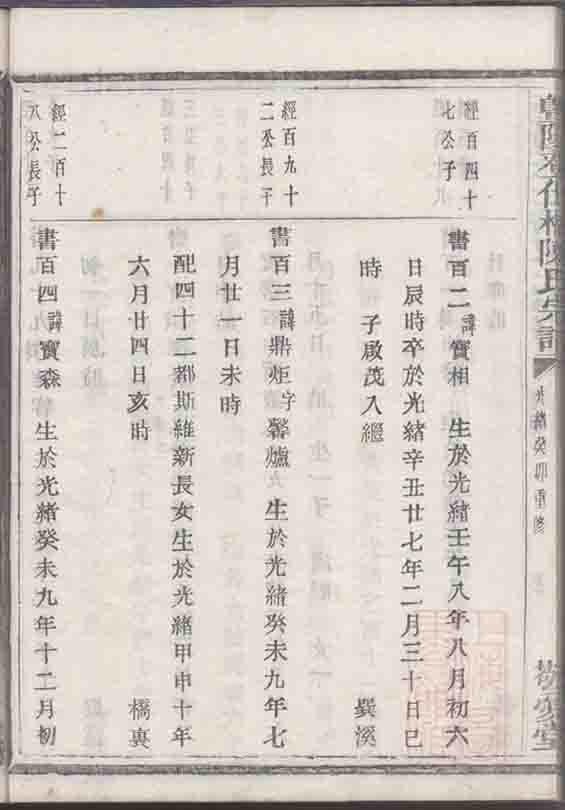 陳氏宗譜
光緒癸卯重修
經百四十
七公子
書百二諱寶相 生於光緒壬午八年八月初六
日辰時卒於光緒辛丑廿七年二月三十日巳
時 子啟茂入繼 巽溪
經百九十
二公長子
書百三諱鼎炬字馨爐 生於光緒癸未九年七
月廿一日未時
配四十二都斯維新長女生於光緒甲申十年
六月廿四日亥時 橋裏
經二百十
八公長子
書百四諱寶森 生於光緒癸未九年十二月初